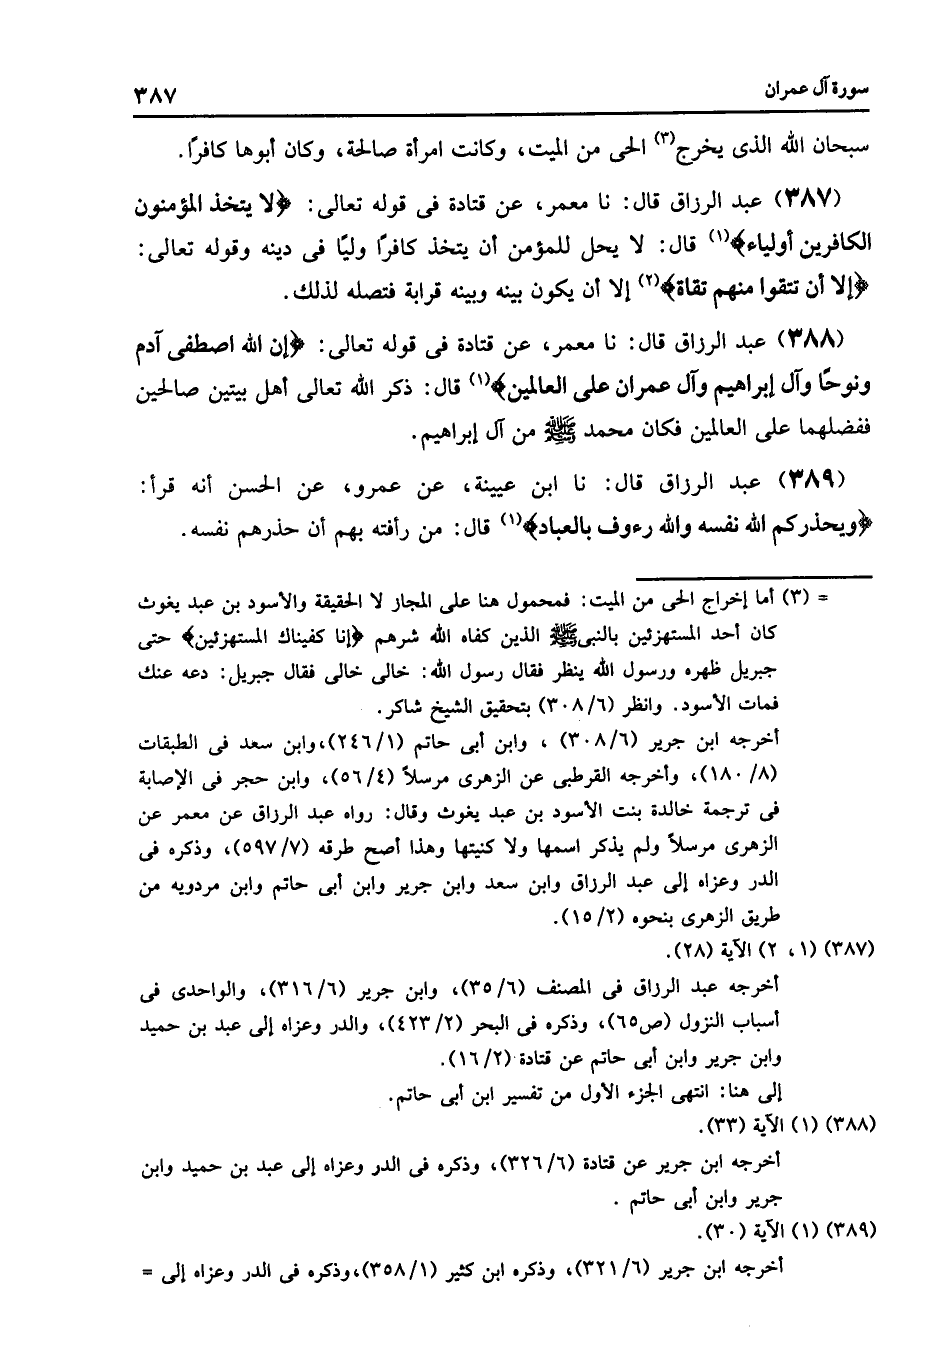 سورة آل عمران ٣٨٧
سبحان الله الذى يخرج(٣) الحى من الميت، وكانت امرأة صالحة، وكان أبوها كافرًا.
(٣٨٧) عبد الرزاق قال: نا معمر، عن قتادة فى قوله تعالى: ﴿لا يتخذ المؤمنون
الكافرين أولياء﴾(١) قال: لا يحل للمؤمن أن يتخذ كافرًا وليًا فى دينه وقوله تعالى:
﴿إلا أن تتقوا منهم تقاة﴾(٢) إلا أن يكون بينه وبينه قرابة فتصله لذلك.
(٣٨٨) عبد الرزاق قال: نا معمر، عن قتادة فى قوله تعالى: ﴿إن الله اصطفى آدم
ونوحًا وآل إبراهيم وآل عمران على العالمين﴾(١) قال: ذكر الله تعالى أهل بيتين صالحين
ففضلهما على العالمين فكان محمد ﷺ من آل إبراهيم.
(٣٨٩) عبد الرزاق قال: نا ابن عيينة، عن عمرو، عن الحسن أنه قرأ:
﴿ويحذركم الله نفسه والله رءوف بالعباد﴾(١) قال: من رأفته بهم أن حذرهم نفسه.
= (٣) أما إخراج الحى من الميت: فمحمول هنا على المجاز لا الحقيقة والأسود بن عبد يغوث
كان أحد المستهزئين بالنبى ﷺ الذين كفاه الله شرهم ﴿إنا كفيناك المستهزئين﴾ حتى
جبريل ظهره ورسول الله ينظر فقال رسول الله: خالى خالى فقال جبريل: دعه عنك
فمات الأسود. وانظر (٣٠٨/٦) بتحقيق الشيخ شاكر.
أخرجه ابن جرير (٣٠٨/٦) ، وابن أبى حاتم (٢٤٦/١)،وابن سعد فى الطبقات
(١٨٠/٨)، وأخرجه القرطبى عن الزهرى مرسلاً (٥٦/٤)، وابن حجر فى الإصابة
فى ترجمة خالدة بنت الأسود بن عبد يغوث وقال: رواه عبد الرزاق عن معمر عن
الزهرى مرسلاً ولم يذكر اسمها ولا كنيتها وهذا أصح طرقه (٥٩٧/٧)، وذكره فى
الدر وعزاه إلى عبد الرزاق وابن سعد وابن جرير وابن أبى حاتم وابن مردويه من
طريق الزهرى بنحوه (١٥/٢).
(٣٨٧) (١، ٢) الآية (٢٨).
أخرجه عبد الرزاق فى المصنف (٣٥/٦)، وابن جرير (٣١٦/٦)، والواحدى فى
أسباب النزول (ص٦٥)، وذكره فى البحر (٤٢٣/٢)، والدر وعزاه إلى عبد بن حميد
وابن جرير وابن أبى حاتم عن قتادة (١٦/٢).
إلى هنا: انتهى الجزء الأول من تفسير ابن أبى حاتم.
(٣٨٨) (١) الآية (٣٣).
أخرجه ابن جرير عن قتادة (٣٢٦/٦)، وذكره فى الدر وعزاه إلى عبد بن حميد وابن
جرير وابن أبى حاتم .
(٣٨٩) (١) الآية (٣٠).
أخرجه ابن جرير (٣٢١/٦)، وذكره ابن كثير (٣٥٨/١)،وذكره فى الدر وعزاه إلى =